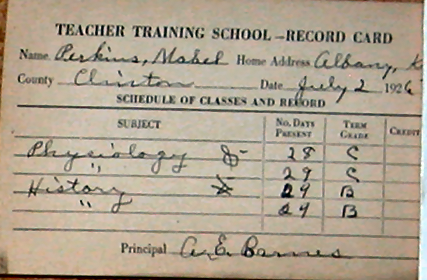 TEACHER TRAINING SCHOOL—RECORD CARD
Name Perkins, Mabel Home Address Albany, K
County Clinton Date July 2 1926
SCHEDULE OF CLASSES AND RECORD
SUBJECT No. Days Present Term Grade Credit
Physiology 28 C
" 29 C
History 29 B
" 29 B
Principal A. E. Barnes